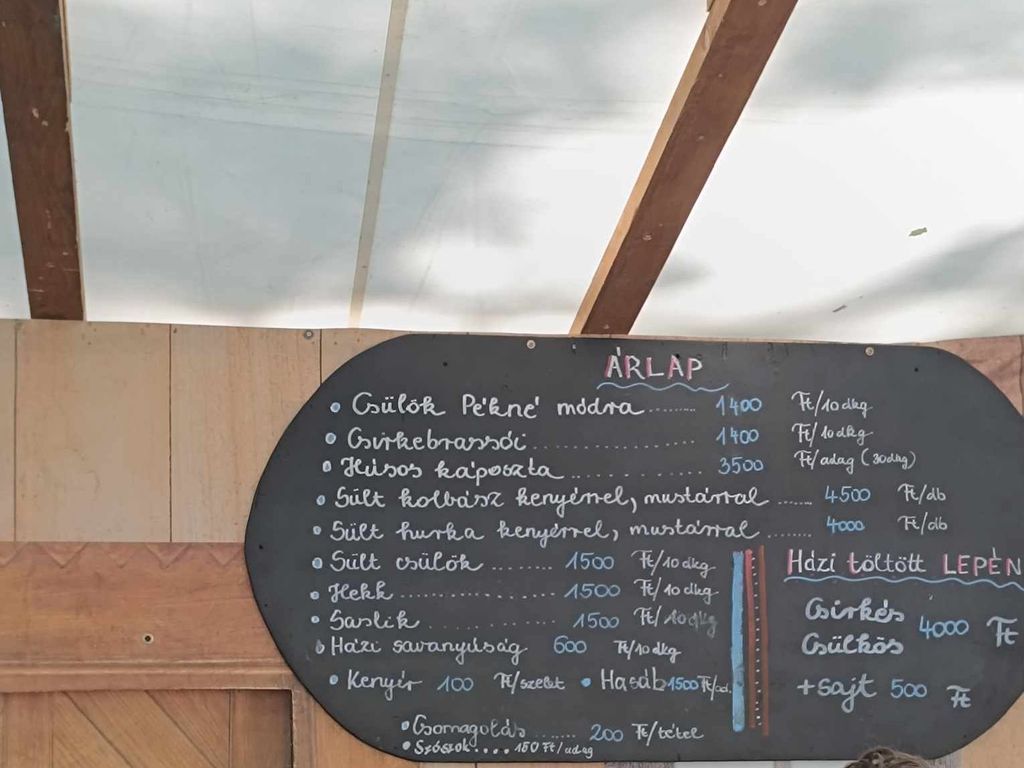 ÁRLAP
• Csülök Pékné módra ........ 1400 Ft/10 dkg
• Csirkebrassói ........ 1400 Ft/10 dkg
• Húsos káposzta ........ 3500 Ft/adag (30dkg)
• Sült kolbász kenyérrel, mustárral ....... 4500 Ft/db
• Sült hurka kenyérrel, mustárral ........ 4000 Ft/db
• Sült csülök ......... 1500 Ft/10 dkg
• Hekk ........ 1500 Ft/10 dkg
• Saslik ........ 1500 Ft/10 dkg
• Házi savanyúság 600 Ft/10 dkg
• Kenyér 100 Ft/szelet • Hasáb 1500 Ft/ad.
• Csomagolás ....... 200 Ft/tétel
• Szószok .... 150 Ft/adag
Házi töltött LEPÉN
Csirkés
Csülkös 4000 Ft
+ sajt 500 Ft